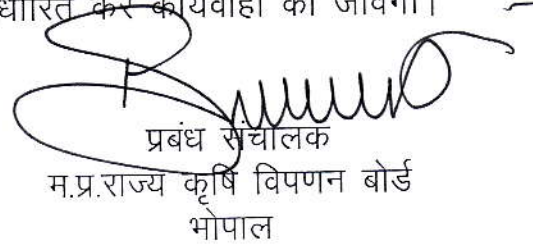 धारित कर कार्यवाही की जावेगी।
प्रबंध संचालक
म.प्र.राज्य कृषि विपणन बोर्ड
भोपाल